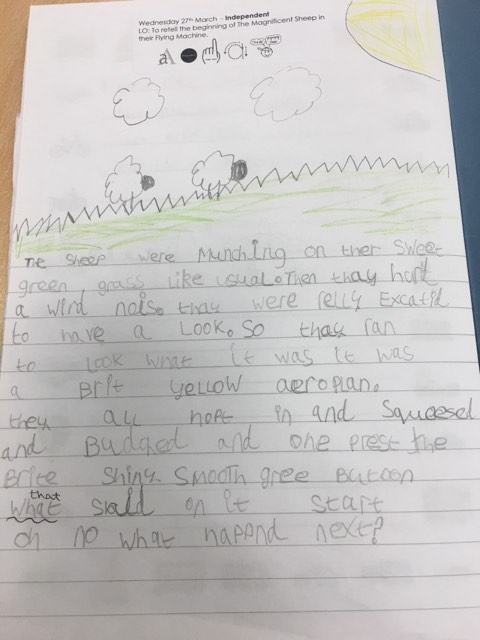 Wednesday 27th March - Independent
LO: To retell the beginning of The Magnificent Sheep in
their Flying Machine.
The sheep were munching on ther sweet
green grass like usual. Then thay hort
a wird nois. thay were relly Excatid
to have a Look. So thay ran
to look what it was it was
a Brit yellow aeroplan.
they all hopt in and Squeesed
and Budged and one prest the
Brite Shiny Smooth gree Butoon
that
what on it Start
oh no what happnd next?